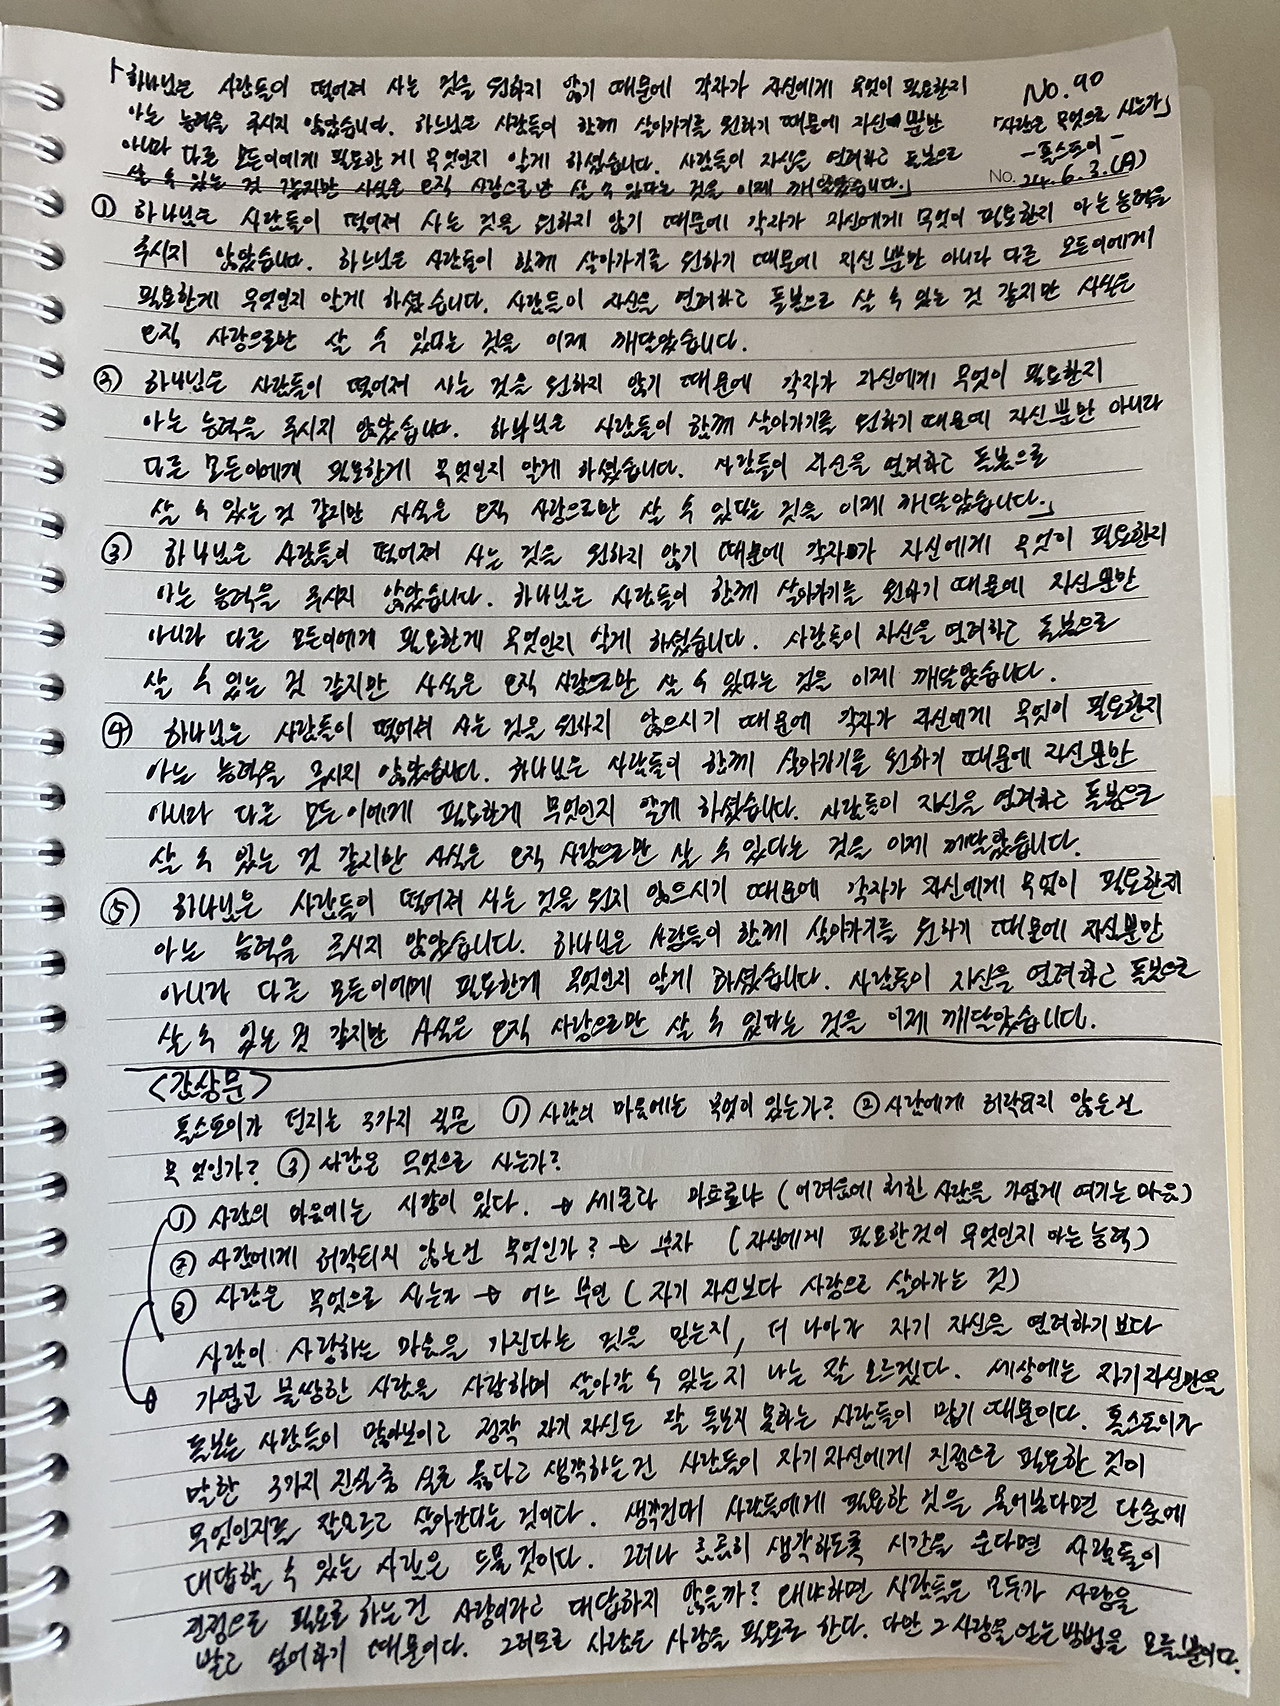 「하나님은 사람들이 떨어져 사는 것을 원하지 않기 때문에 각자가 자신에게 무엇이 필요한지
No. 90
아는 능력을 주시지 않았습니다. 하느님은 사람들이 함께 살아가기를 원하기 때문에 자신뿐만
「사람은 무엇으로 사는가」
아니라 다른 모든이에게 필요한 게 무엇인지 알게 하셨습니다. 사람들이 자신을 염려하고 돌봄으로
-톨스토이-
살 수 있는 것 같지만 사실은 오직 사랑으로만 살 수 있다는 것을 이제 깨달았습니다.」
No. 24. 6. 3. (月)
① 하나님은 사람들이 떨어져 사는 것을 원하지 않기 때문에 각자가 자신에게 무엇이 필요한지 아는 능력을
주시지 않았습니다. 하느님은 사람들이 함께 살아가기를 원하기 때문에 자신뿐만 아니라 다른 모든이에게
필요한게 무엇인지 알게 하셨습니다. 사람들이 자신을 염려하고 돌봄으로 살 수 있는 것 같지만 사실은
오직 사랑으로만 살 수 있다는 것을 이제 깨달았습니다.
② 하나님은 사람들이 떨어져 사는 것을 원하지 않기 때문에 각자가 자신에게 무엇이 필요한지
아는 능력을 주시지 않았습니다. 사람들이 함께 살아가기를 원하기 때문에 자신뿐만 아니라
다른 모든이에게 필요한게 무엇인지 알게 하셨습니다. 사람들이 자신을 염려하고 돌봄으로
살 수 있는 것 같지만 사실은 오직 사랑으로만 살 수 있다는 것을 이제 깨달았습니다.」
③ 하나님은 사람들이 떨어져 사는 것을 원하지 않기 때문에 각자가 자신에게 무엇이 필요한지
아는 능력을 주시지 않았습니다. 하나님는 사람들이 함께 살아가기를 원하기 때문에 자신뿐만
아니라 다른 모든이에게 필요한게 무엇인지 알게 하셨습니다. 사람들이 자신을 염려하고 돌봄으로
살 수 있는 것 같지만 사실은 오직 사랑으로만 살 수 있다는 것을 이제 깨달았습니다.
④ 하나님은 사람들이 떨어져 사는 것을 원하지 않으시기 때문에 각자가 자신에게 무엇이 필요한지
아는 능력을 주시지 않았습니다. 하나님은 사람들이 함께 살아가기를 원하기 때문에 자신뿐만
아니라 다른 모든이에게 필요한게 무엇인지 알게 하셨습니다. 사람들이 자신을 염려하고 돌봄으로
살 수 있는 것 같지만 사실은 오직 사랑으로만 살 수 있다는 것을 이제 깨달았습니다.
⑤ 하나님은 사람들이 떨어져 사는 것을 원지 않으시기 때문에 각자가 자신에게 무엇이 필요한지
아는 능력을 주시지 않았습니다. 하나님은 사람들이 함께 살아가기를 원하기 때문에 자신뿐만
아니라 다른 모든이에게 필요한게 무엇인지 알게 하셨습니다. 사람들이 자신을 염려하고 돌봄으로
살 수 있는 것 같지만 사실은 오직 사랑으로만 살 수 있다는 것을 이제 깨달았습니다.
<감상문>
톨스토이가 던지는 3가지 질문 ① 사람의 마음에는 무엇이 있는가? ② 사람에게 허락되지 않는건
무엇인가? ③ 사람은 무엇으로 사는가?
① 사람의 마음에는 사랑이 있다. → 세몬과 마트료나 (어려움에 처한 사람을 가엽게 여기는 마음)
② 사람에게 허락되지 않는건 무엇인가? → 부자 (자신에게 필요한것이 무엇인지 아는 능력)
③ 사람은 무엇으로 사는가 → 어느 부인 (자기 자신보다 사랑으로 살아가는 것)
사람이 사랑하는 마음을 가진다는 것을 믿는지, 더 나아가 자기 자신을 염려하기보다
가엽고 불쌍한 사람을 사랑하며 살아갈 수 있는지 나는 잘 모르겠다. 세상에는 자기자신만을
돌보는 사람들이 많아보이고 정작 자기 자신도 잘 돌보지 못하는 사람들이 많기 때문이다. 톨스토이가
말한 3가지 진실중 실로 옳다고 생각하는건 사람들이 자기자신에게 진정으로 필요한 것이
무엇인지를 잘모르고 살아간다는 것이다. 생각건대 사람들에게 필요한 것을 물어본다면 단숨에
대답할 수 있는 사람은 드물 것이다. 그러나 곰곰히 생각하도록 시간을 준다면 사람들이
진정으로 필요로 하는건 사랑이라고 대답하지 않을까? 왜냐하면 사람들은 모두가 사랑을
받고 싶어하기 때문이다. 그러므로 사람은 사랑을 필요로 한다. 다만 그 사랑을 얻는 방법을 모를 뿐이다.